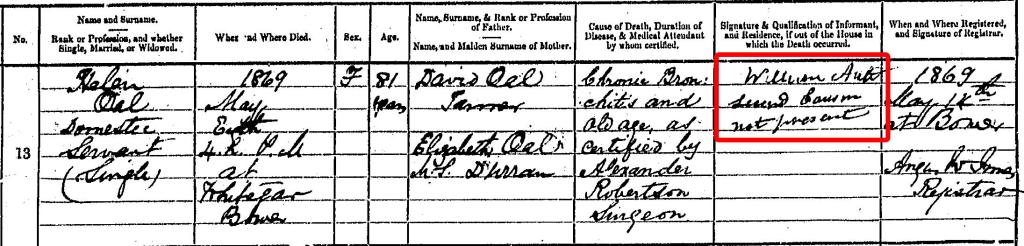 No.
Name and Surname.
Rank or Profession, and whether
Single, Married, or Widowed.
When and Where Died.
Sex.
Age.
Name, Surname, & Rank or Profession
of Father.
Name, and Maiden Surname of Mother.
Cause of Death, Duration of
Disease, & Medical Attendant
by whom certified.
Signature & Qualification of Informant,
and Residence, if out of the House in
which the Death occurred.
When and Where Registered,
and Signature of Registrar.
13
Helen
Oal
Domestic
Servant
(Single)
1869
May
4. P.M
at
Bower
F
81
years
David Oal
Elizabeth Oal
M.S. Durran
Chronic Bron:
chitis and
old age, as
certified by
Alexander
Robertson
Surgeon
William
second Cousin
not present
1869
May 14th
at Bower
Registrar